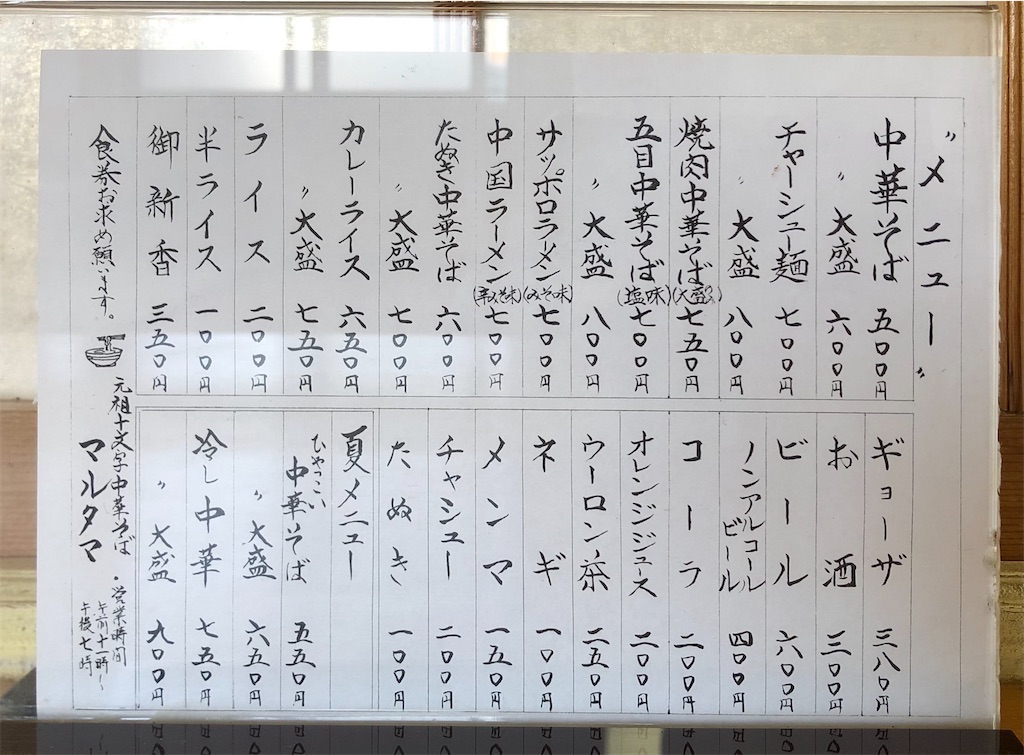 〃メニュー〃
中華そば 五〇〇円
〃大盛 六〇〇円
チャーシュー麺 七〇〇円
〃大盛 八〇〇円
焼肉中華そば(大盛のみ) 七五〇円
五目中華そば(塩味) 七〇〇円
〃大盛 八〇〇円
サッポロラーメン(みそ味) 七〇〇円
中国ラーメン(辛みそ味) 七〇〇円
たぬき中華そば 六〇〇円
〃大盛 七〇〇円
カレーライス 六五〇円
〃大盛 七五〇円
ライス 二〇〇円
半ライス 一〇〇円
御新香 三五〇円
ギョーザ 三八〇円
お酒 三〇〇円
ビール 六〇〇円
ノンアルコールビール 四〇〇円
コーラ 二〇〇円
オレンジジュース 二〇〇円
ウーロン茶 二五〇円
ネギ 一〇〇円
メンマ 一五〇円
チャシュー 二〇〇円
たぬき 一〇〇円
夏メニュー
ひやっこい中華そば 五五〇円
〃大盛 六五〇円
冷し中華 七五〇円
〃大盛 九〇〇円
食券お求め願います。
元祖十文字中華そば
マルタマ
・営業時間
午前十一時〜
午後七時